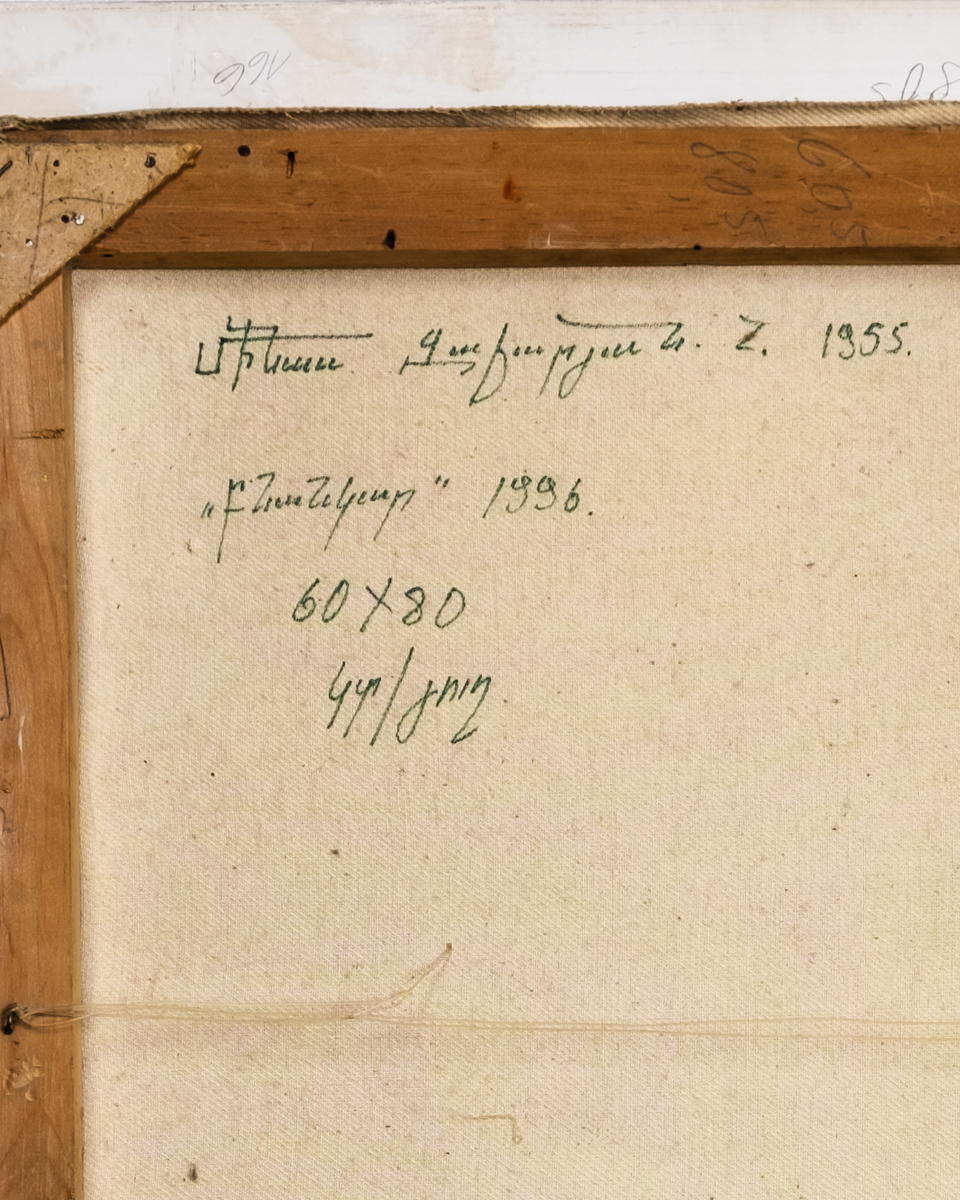 Մինաս Զաքարյան. Հ. 1955.
„Բնանկար“ 1996.
60X80
կտ/յուղ